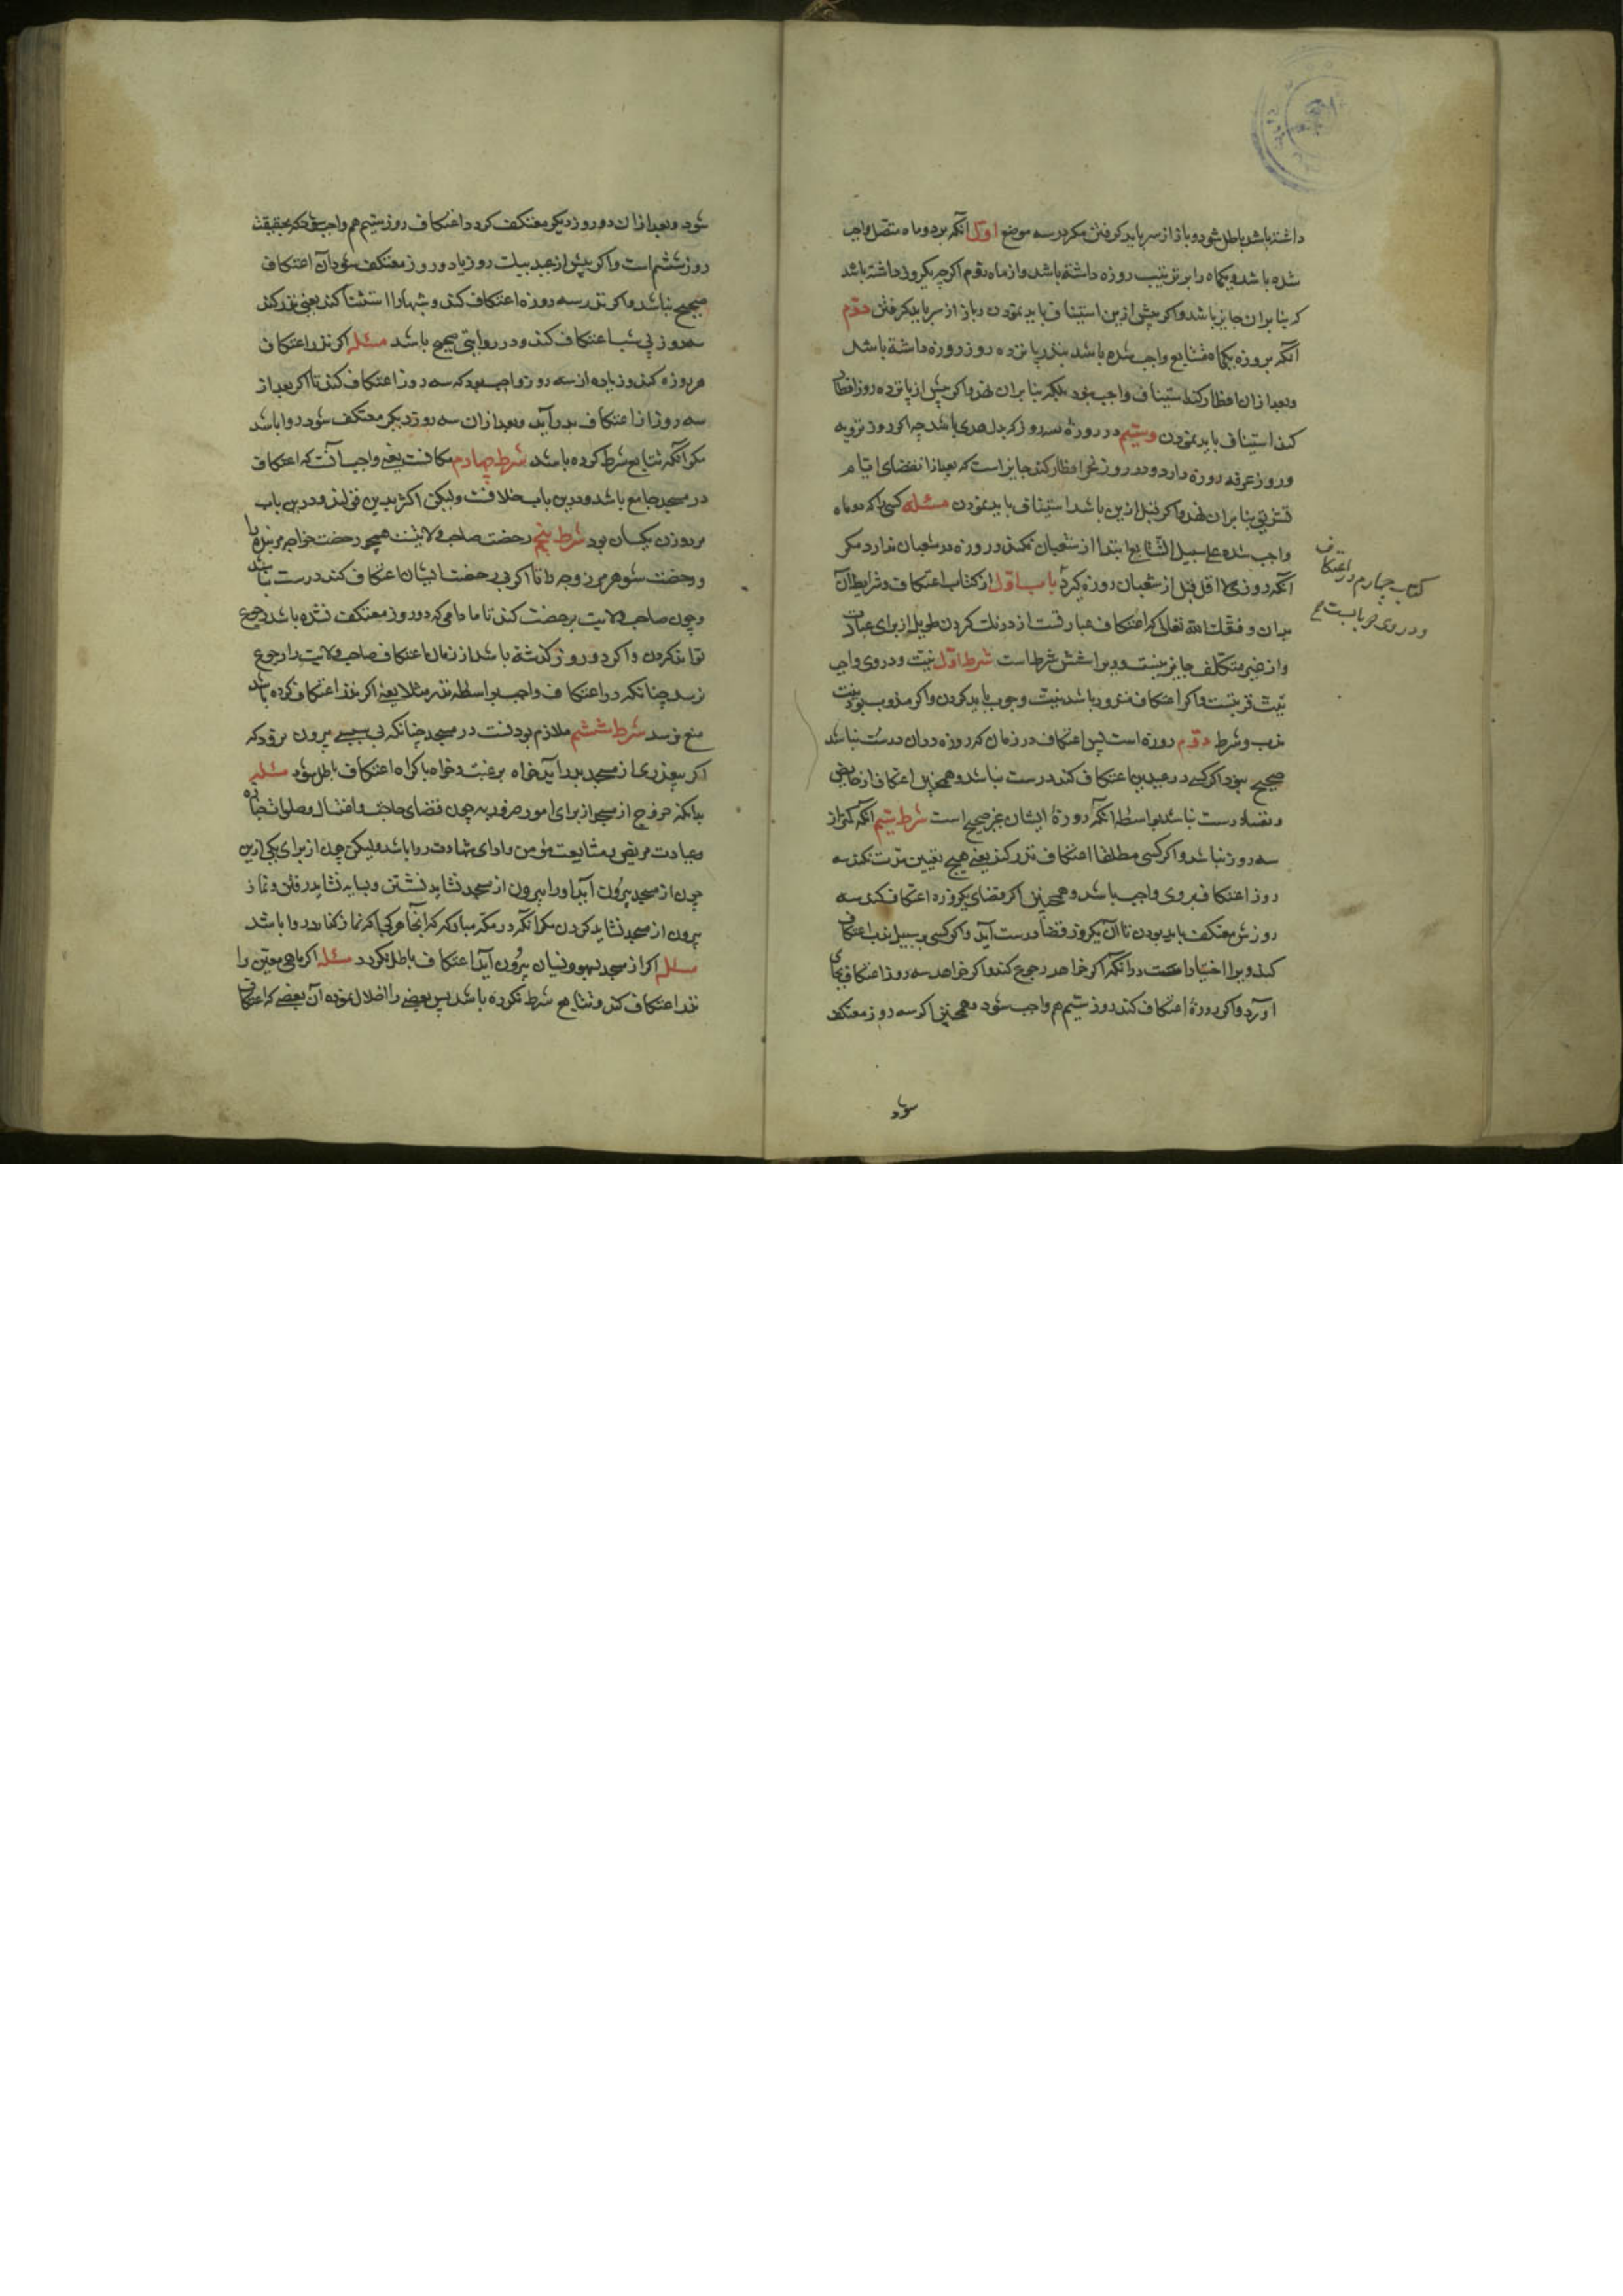 داشته باشد باطل شود و باز از سر باید گرفتن مگر در سه موضع اول آنکه برو دو ماه متصل واجب
شده باشد و یکماه را بر ترتیب روزه داشته باشد و از ماه دوم اگرچه یکروز داشته باشد
که بنا بر آن جایز باشد و اگر پیش ازین استیناف باید نمودن و باز از سر باید گرفتن دوم
آنکه برو روزه یکماه متتابع واجب شده باشد بنذر پانزده روز روزه داشته باشد
و بعد از آن افطار کند استیناف واجب نبود بلکه بنا بر آن نهد و اگر پیش از پانزده روز افطار
کند استیناف باید نمودن وسیّم در روزه سه روز که بدل هدی باشد چه اگر روز ترویه
و روز عرفه روزه دارد و در روز نحر افطار کند جایز است که بعد از انقضای ایام
تشریق بنا بر آن نهد و اگر قبل ازین باشد استیناف باید نمودن مسئله کسی را که دو ماه
واجب شده علی سبیل التتابع ابتدا از شعبان نکند و روزه در شعبان ندارد مگر
آنکه روزی لا اقل قبل از شعبان روزه گیرد باب اول از کتاب اعتکاف و شرایط آن
بدان وفقک الله تعالی که اعتکاف عبارتست از درنگ کردن طویل از برای عبادت
و از غیر متکلف جایز نیست و ویرا شش شرط است شرط اول نیت و در وی واجب
نیّت قربتست و اگر اعتکاف منذور باشد نیت وجوب باید کردن و اگر مندوب بود نیت
ندب و شرط دوم روزه است پس اعتکاف در زمان که روزه در آن درست نباشد
صحیح نبود اگر کسی در عیدین اعتکاف کند درست نباشد و همچنین اعتکاف از حایض
و نفسا درست نباشد بواسطه آنکه روزهٔ ایشان غیر صحیح است شرط سیّم آنکه کمتر از
سه روز نباشد و اگر کسی مطلقا اعتکاف نذر کند یعنی هیچ تعیین مدت نکند سه
روز اعتکاف بروی واجب باشد و همچنین اگر قضای یکروزه اعتکاف کند سه
روزش معتکف باید بودن تا آن یکروز قضا درست آید و اگر کسی بر سبیل ندب اعتکاف
کند ویرا اختیار است در آنکه اگر خواهد رجوع کند و اگر خواهد سه روز اعتکاف بجای
آورد و اگر دو روزه اعتکاف کند روز سیّم هم واجب شود و همچنین اگر سه روز معتکف
شود
کتاب چهارم در اعتکاف
و در وی
شود و بعد از آن دو روز دیگر معتکف گردد اعتکاف روز سیّم هم واجب شود که بحقیقت
روز ششم است و اگر پیش از عید بیک روز یا دو روز معتکف شود آن اعتکاف
صحیح نباشد و اگر نذر سه روزه اعتکاف کند و شبها را استثنا کند یعنی نذر کند
سه روز بی شب اعتکاف کند و در روایتی صحیح باشد مسئله اگر نذر اعتکاف
هر روزه کند و زیاده از سه روز واجب بود که سه روز اعتکاف کند تا اگر بعد از
سه روز از اعتکاف بدر آید و بعد از آن سه روز دیگر معتکف شود روا باشد
مگر آنکه تتابع شرط کرده باشد شرط چهارم مکانست یعنی واجب آنست که اعتکاف
در مسجد جامع باشد و درین باب خلافست ولیکن اکثر بدین قولند و درین باب
مرد و زن یکسان بود شرط پنجم رخصت صاحب ولایتست همچو رخصت خواجه مر بنده را
و رخصت شوهر مر زوجه را تا اگر بی رخصت ایشان اعتکاف کند درست نباشد
و چون صاحب ولایت برخصت کند تا مادامی که دو روز معتکف نشده باشد رجوع
تواند کردن و اگر دو روز گذشته باشد از زمان اعتکاف صاحب ولایت را رجوع
نرسد چنانکه در اعتکاف واجب بواسطه نذر مثلا یعنی اگر نذر اعتکاف کرده باشد
منع نرسد شرط ششم ملازم بودنست در مسجد چنانکه بی سببی بیرون نرود که
اگر بعذری از مسجد بدر آید خواه برغبت و خواه باکراه اعتکاف باطل شود مسئله
بدانکه خروج از مسجد از برای امور ضروریه چون قضای حاجت و اغتسال و صلات جنازه
و عیادت مریض و مشایعت مؤمن و ادای شهادت روا باشد ولیکن چون از برای یکی ازین
چون از مسجد بیرون آید او را بیرون از مسجد نشاید نشستن و بسایه نشاید رفتن و نماز
بیرون از مسجد نشاید کردن مگر آنکه در مکه مبارکه که آنجا هر کجا که نماز گذارد روا باشد
مسئله اگر از مسجد بسهو و نسیان بیرون آید اعتکاف باطل نگردد مسئله اگر ماهی معین را
نذر اعتکاف کند و تتابع شرط نکرده باشد پس بعضی را اخلال نموده آن بعضی که اعتکاف